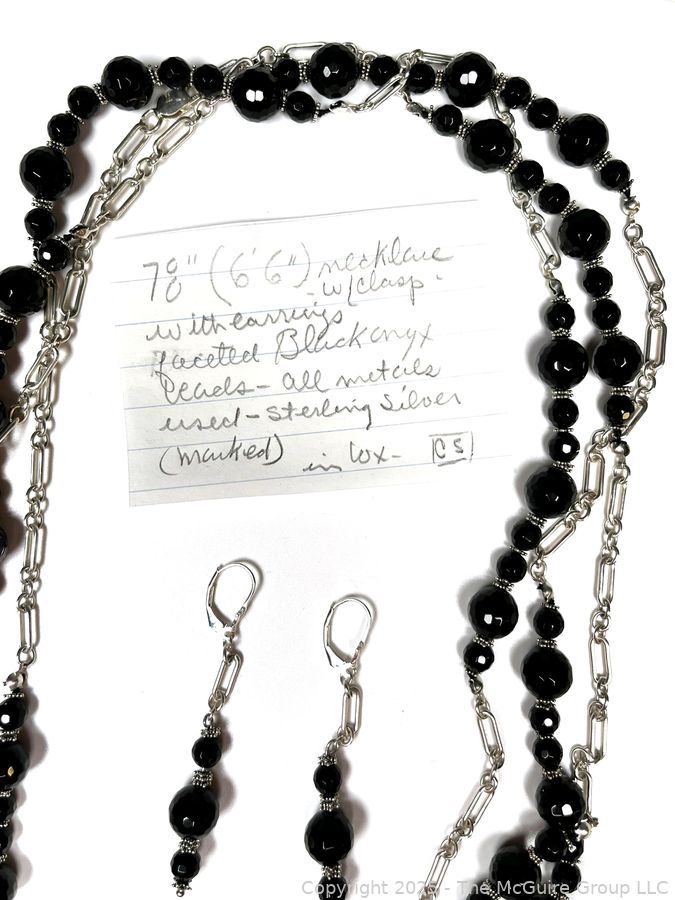 78" (6' 6") necklace
- w/clasp -
with earrings
faceted Black onyx
beads - all metals
used - sterling silver
(marked) in box - CS
Copyright 202 - The McGuire Group LLC